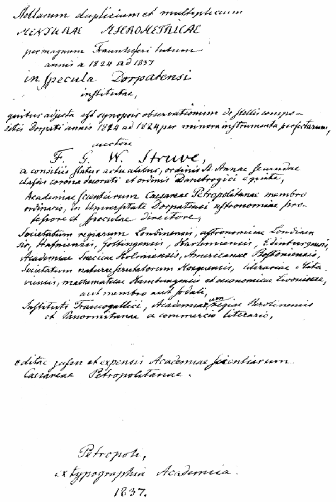 Stellarum duplicium et multiplicium
MENSURAE MICROMETRICAE
per magnum Fraunhoferi tubum
annis a 1824 ad 1837
in specula Dorpatensi
institutae,
quibus adjecta est synopsis observationum de stellis compo-
sitis Dorpati annis 1824 ad 1824 per minora instrumenta perfectarum,
auctore
F. G. W. Struve,
a consiliis status actualibus, ordinis St. Annae secundae
classis corona ornati et ordinis Danebrogici equite,
Academiae scientiarum Caesareae Petropolitanae membro
ordinario, in Universitate Dorpatensi astronomiae pro-
fessore et speculae Directore,
Societatum regiarum Londinensis, astronomicae Londinen
sis, Hafniensis, Gottingensis, Harlemensis, Edinburgensis,
Academiae Sueciae Holmiensis, Americanae Bostoniensis,
Societatum naturae scrutatorum Mosquensis, literariae Mita-
viensis, mathematicae Hamburgensis et oeconomicae Livoniensis,
aut membro aut sodali,
Instituti Francogallici, Academiarum regiae Berolinensis
et Panormitanae a commercio literario,
editae jussu et expensis Academiae scientiarum
Caesareae Petropolitanae.
Petropoli,
ex typographia Academica.
1837.